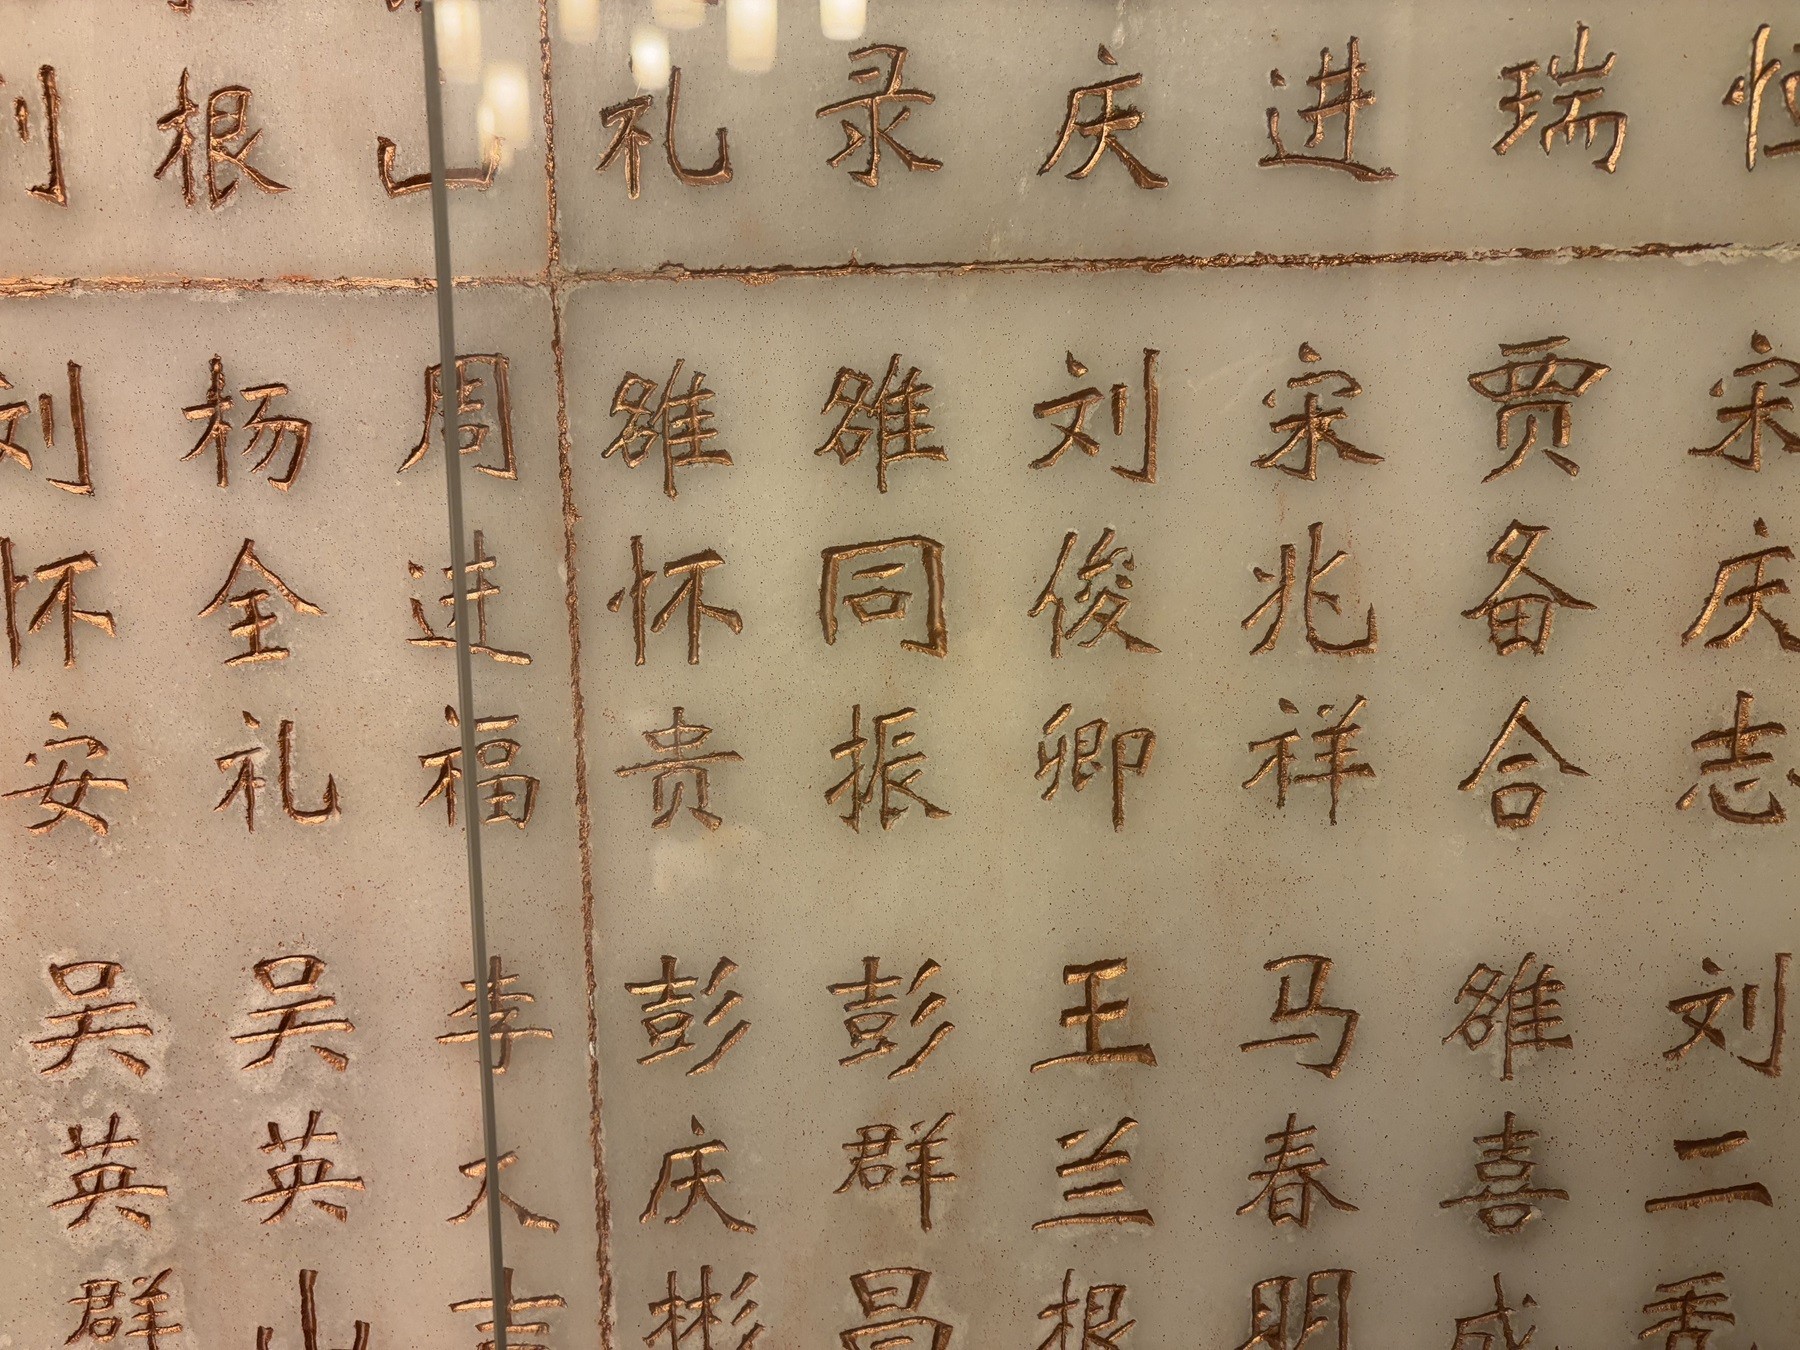 根
山
礼
录
庆
进
瑞
恒
刘怀安
杨全礼
周进福
雒怀贵
雒同振
刘俊卿
宋兆祥
贾备合
宋庆志
吴英群
吴英山
李久
彭庆彬
彭群昌
王兰根
马春明
雒喜成
刘二秀